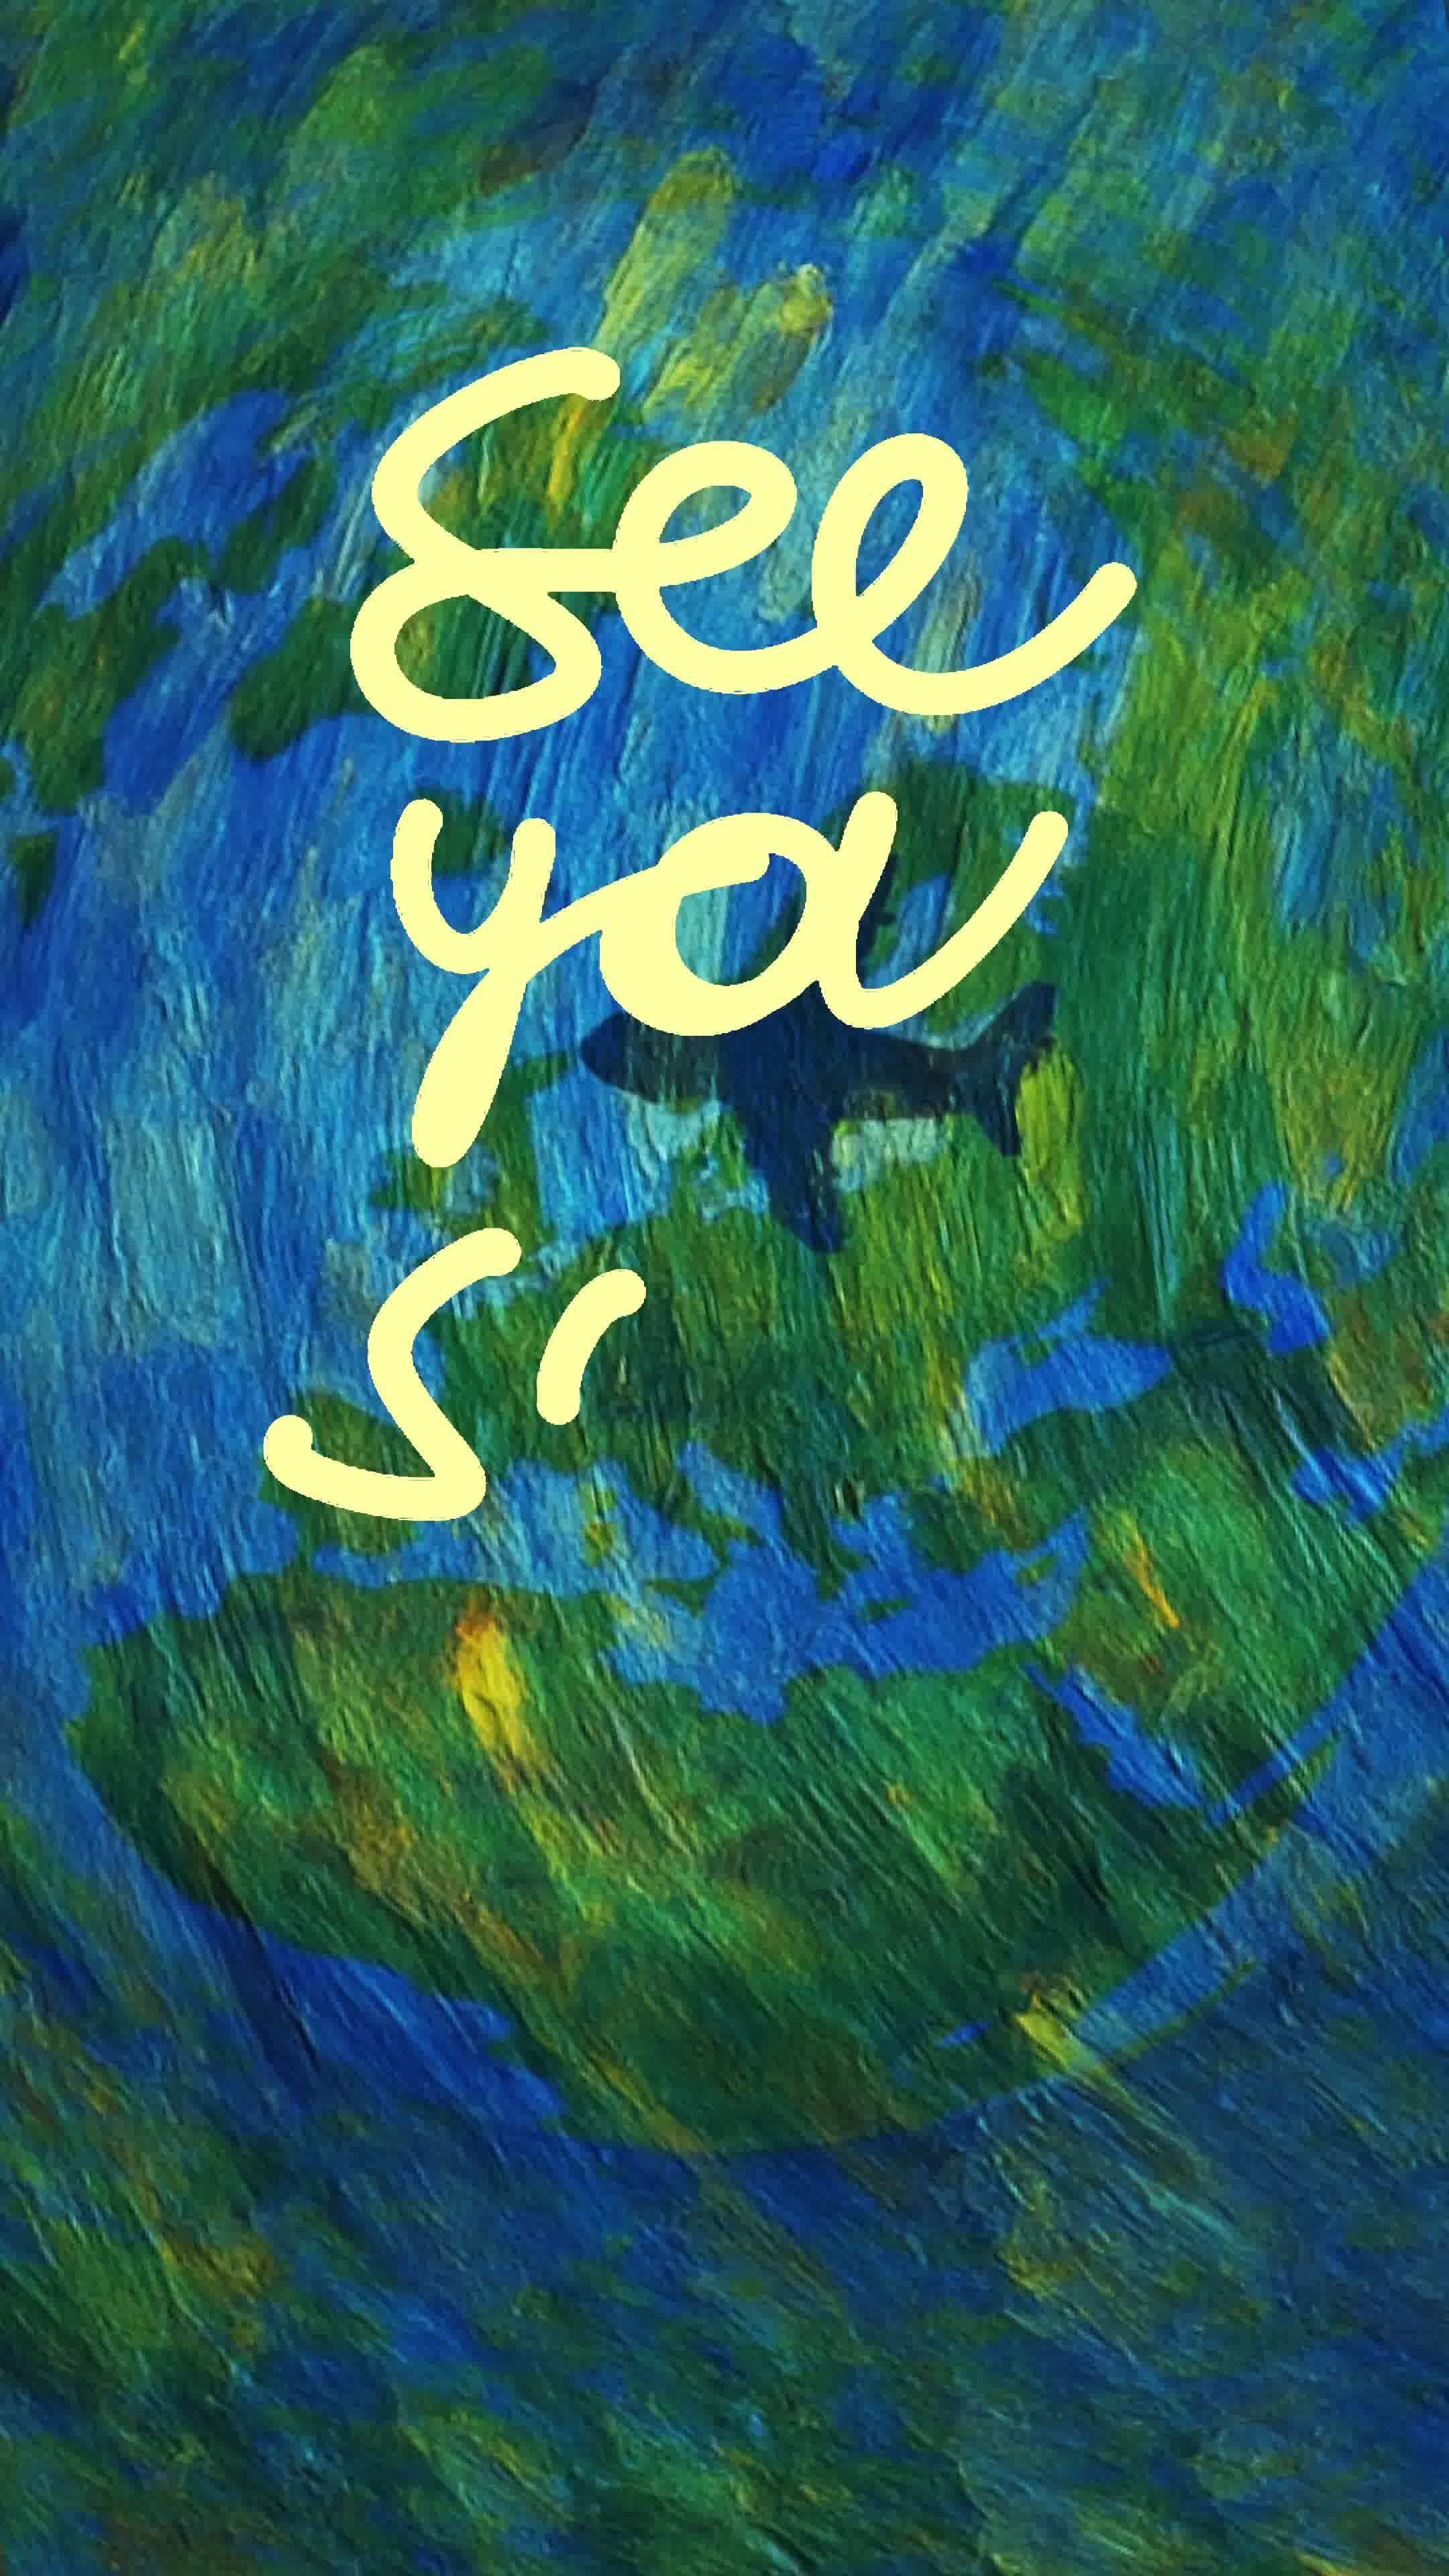 See
you
S